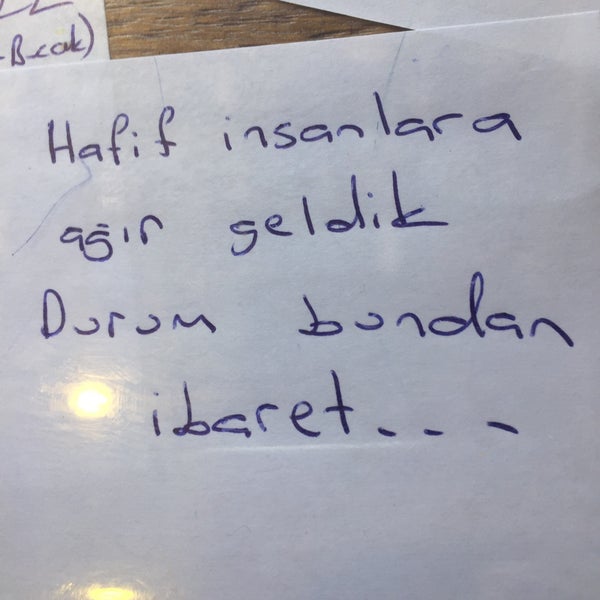 -Break)
Hafif insanlara
ağır geldik
Durum bundan
ibaret...